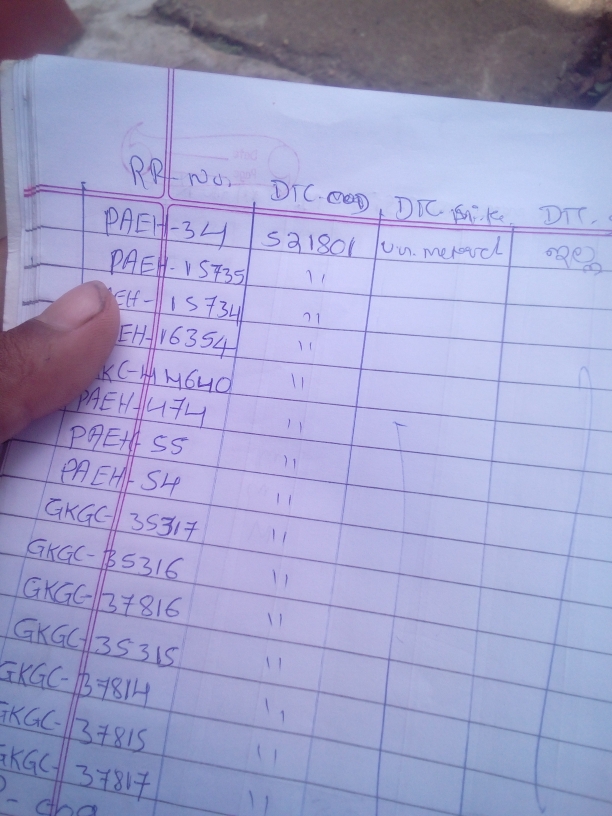 RR-No. DTC-
PAEH-34 521801 ಇಲ್ಲ
PAEH-15735 "
AEH-15734 "
EH-16354 "
KC-44640 "
PAEH-474 "
PAEH-55 "
PAEH-54 "
GKGC-35317 "
GKGC-35316 "
GKGC-37816 "
GKGC-35315 "
GKGC-37814 "
GKGC-37815 "
GKGC-37817 "